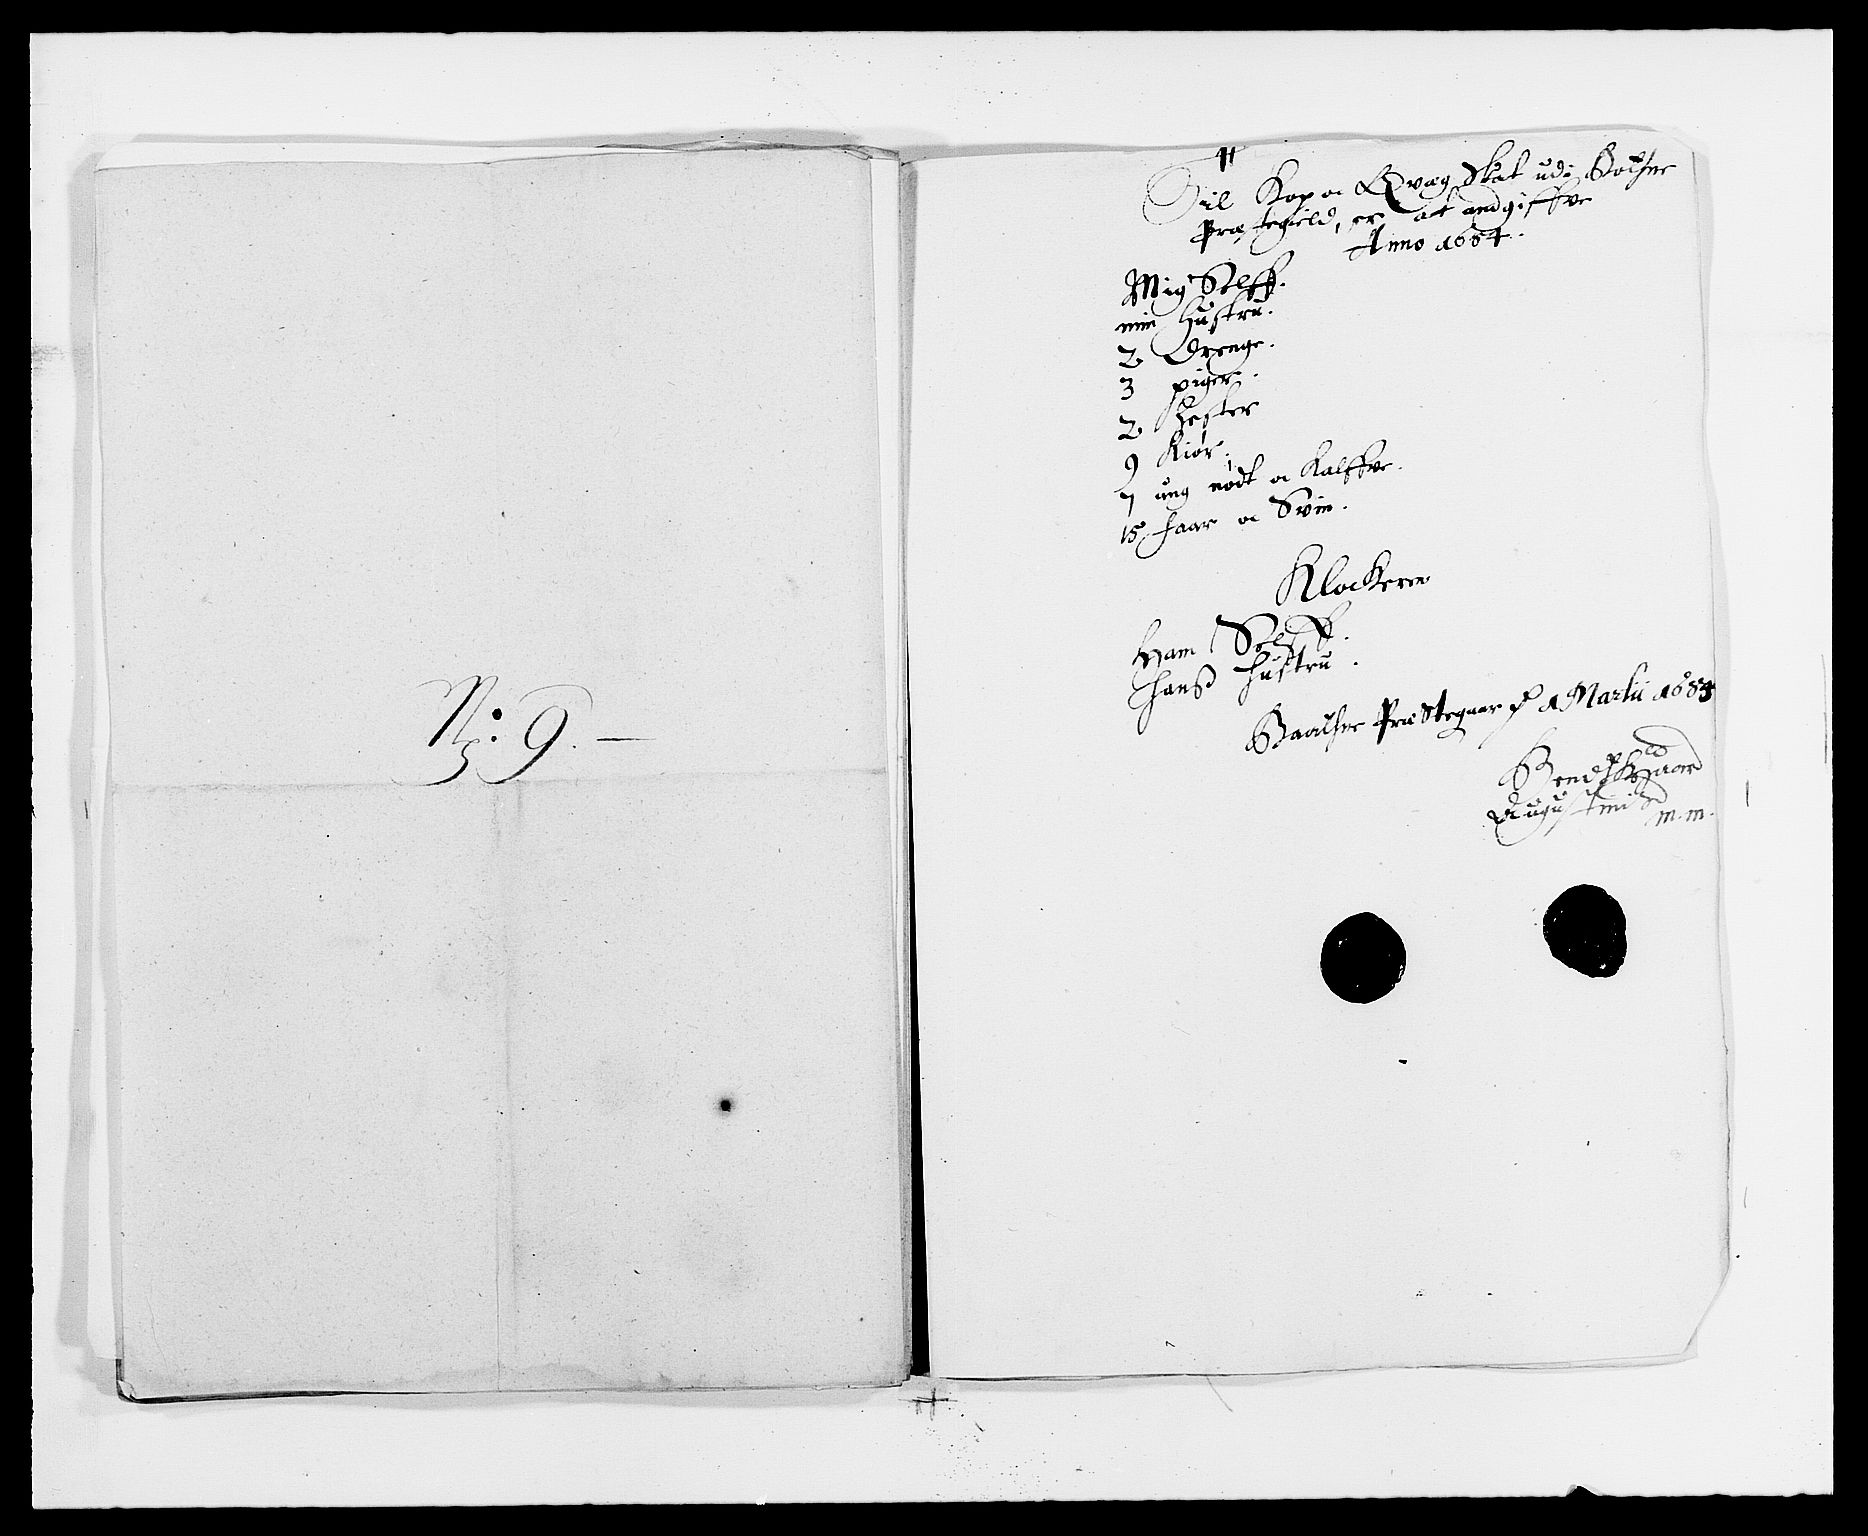 No: 9. —
Til Kop oc Qvæg Skat udi Bolsøe
Præstegield, er at andgiffve
Anno 1684.
Mig Selff.
min Hustru.
2 Drenge.
3 piger.
2 Hester
9 Kiør.
7 ung nødt oc Kalffve.
15 faar oc Svin.
Klockeren
Ham Selff.
hanß hustru.
Præstegaar d 1 Martii 1684
Augustinus
m. m.